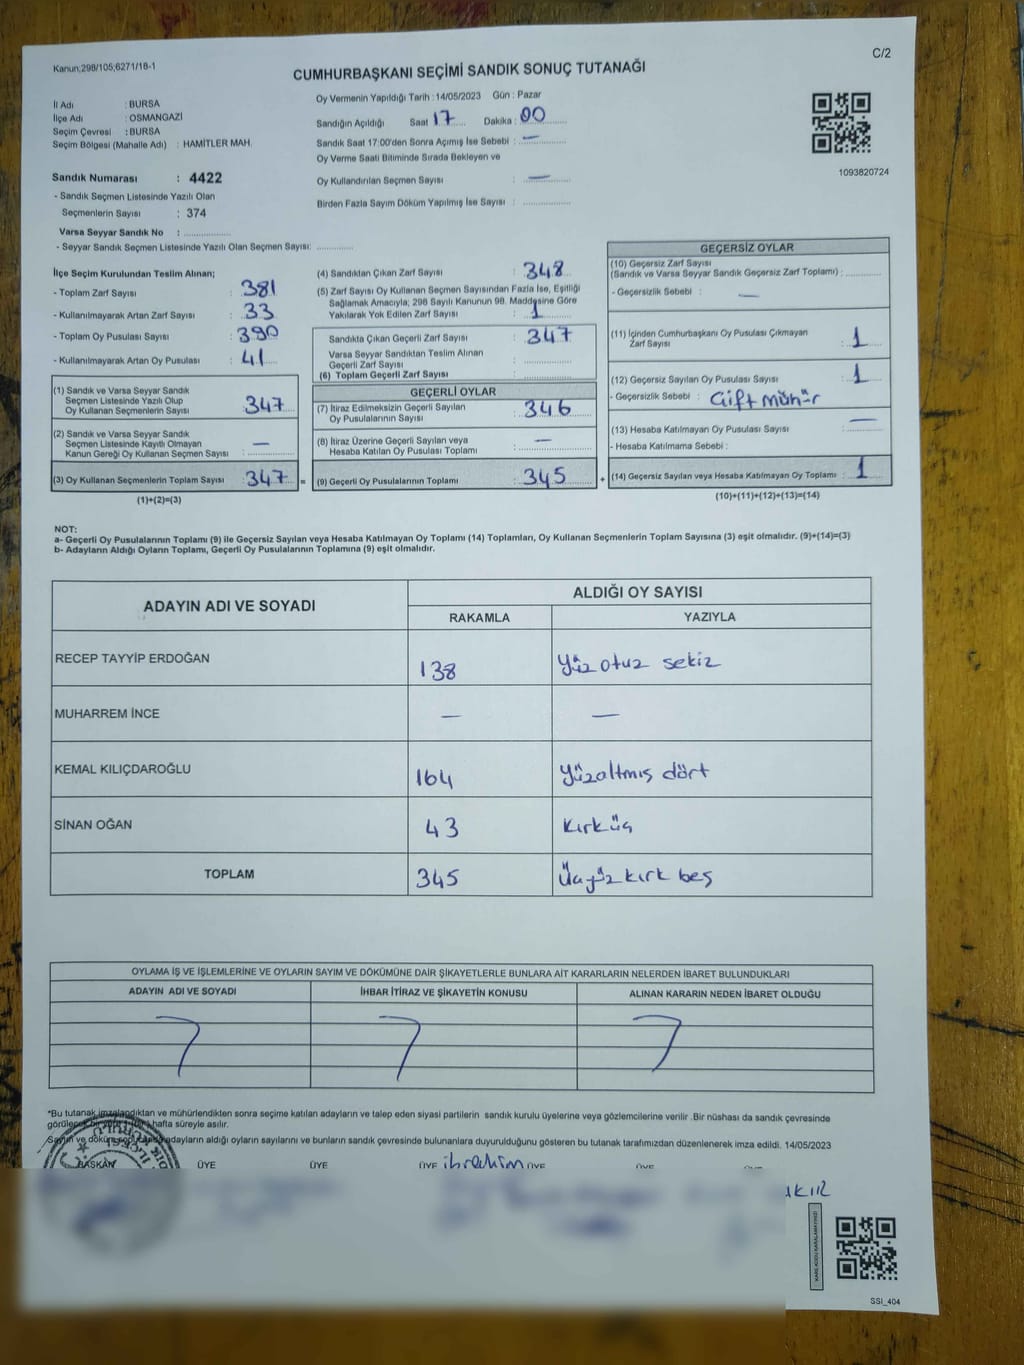 Kanun;298/105;6271/18-1
C/2
CUMHURBAŞKANI SEÇİMİ SANDIK SONUÇ TUTANAĞI
İl Adı : BURSA
İlçe Adı : OSMANGAZİ
Seçim Çevresi : BURSA
Seçim Bölgesi (Mahalle Adı) : HAMİTLER MAH.
Sandık Numarası : 4422
- Sandık Seçmen Listesinde Yazılı Olan
Seçmenlerin Sayısı : 374
Varsa Seyyar Sandık No :
- Seyyar Sandık Seçmen Listesinde Yazılı Olan Seçmen Sayısı:
Oy Vermenin Yapıldığı Tarih : 14/05/2023 Gün : Pazar
Sandığın Açıldığı Saat 17 Dakika : 00
Sandık Saat 17:00'den Sonra Açımış İse Sebebi : —
Oy Verme Saati Bitiminde Sırada Bekleyen ve
Oy Kullandırılan Seçmen Sayısı : —
Birden Fazla Sayım Döküm Yapılmış İse Sayısı :
1093820724
İlçe Seçim Kurulundan Teslim Alınan;
- Toplam Zarf Sayısı : 381
- Kullanılmayarak Artan Zarf Sayısı : 33
- Toplam Oy Pusulası Sayısı : 390
- Kullanılmayarak Artan Oy Pusulası : 41
(1) Sandık ve Varsa Seyyar Sandık
Seçmen Listesinde Yazılı Olup
Oy Kullanan Seçmenlerin Sayısı : 347
(2) Sandık ve Varsa Seyyar Sandık
Seçmen Listesinde Kayıtlı Olmayan
Kanun Gereği Oy Kullanan Seçmen Sayısı : —
(3) Oy Kullanan Seçmenlerin Toplam Sayısı : 347 =
(1)+(2)=(3)
(4) Sandıktan Çıkan Zarf Sayısı : 348
(5) Zarf Sayısı Oy Kullanan Seçmen Sayısından Fazla İse, Eşitliği
Sağlamak Amacıyla; 298 Sayılı Kanunun 98. Maddesine Göre
Yakılarak Yok Edilen Zarf Sayısı : 1
Sandıkta Çıkan Geçerli Zarf Sayısı : 347
Varsa Seyyar Sandıktan Teslim Alınan
Geçerli Zarf Sayısı :
(6) Toplam Geçerli Zarf Sayısı :
GEÇERLİ OYLAR
(7) İtiraz Edilmeksizin Geçerli Sayılan
Oy Pusulalarının Sayısı : 346
(8) İtiraz Üzerine Geçerli Sayılan veya
Hesaba Katılan Oy Pusulası Toplamı : —
(9) Geçerli Oy Pusulalarının Toplamı : 345 +
GEÇERSİZ OYLAR
(10) Geçersiz Zarf Sayısı
(Sandık ve Varsa Seyyar Sandık Geçersiz Zarf Toplamı) :
- Geçersizlik Sebebi : —
(11) İçinden Cumhurbaşkanı Oy Pusulası Çıkmayan
Zarf Sayısı : 1
(12) Geçersiz Sayılan Oy Pusulası Sayısı : 1
- Geçersizlik Sebebi : Çift mühür
(13) Hesaba Katılmayan Oy Pusulası Sayısı : —
- Hesaba Katılmama Sebebi :
(14) Geçersiz Sayılan veya Hesaba Katılmayan Oy Toplamı : 1
(10)+(11)+(12)+(13)=(14)
NOT:
a- Geçerli Oy Pusulalarının Toplamı (9) ile Geçersiz Sayılan veya Hesaba Katılmayan Oy Toplamı (14) Toplamları, Oy Kullanan Seçmenlerin Toplam Sayısına (3) eşit olmalıdır. (9)+(14)=(3)
b- Adayların Aldığı Oyların Toplamı, Geçerli Oy Pusulalarının Toplamına (9) eşit olmalıdır.
ADAYIN ADI VE SOYADI
ALDIĞI OY SAYISI
RAKAMLA YAZIYLA
RECEP TAYYİP ERDOĞAN 138 Yüz otuz sekiz
MUHARREM İNCE — —
KEMAL KILIÇDAROĞLU 164 Yüzaltmış dört
SİNAN OĞAN 43 Kırküç
TOPLAM 345 Üçyüz kırk beş
OYLAMA İŞ VE İŞLEMLERİNE VE OYLARIN SAYIM VE DÖKÜMÜNE DAİR ŞİKAYETLERLE BUNLARA AİT KARARLARIN NELERDEN İBARET BULUNDUKLARI
ADAYIN ADI VE SOYADI İHBAR İTİRAZ VE ŞİKAYETİN KONUSU ALINAN KARARIN NEDEN İBARET OLDUĞU
*Bu tutanak imzalandıktan ve mühürlendikten sonra seçime katılan adayların ve talep eden siyasi partilerin sandık kurulu üyelerine veya gözlemcilerine verilir .Bir nüshası da sandık çevresinde
görülecek bir yere 1 hafta süreyle asılır.
Sayım ve döküm sonunda adayların aldığı oyların sayılarını ve bunların sandık çevresinde bulunanlara duyurulduğunu gösteren bu tutanak tarafımızdan düzenlenerek imza edildi. 14/05/2023
BAŞKAN ÜYE ÜYE ÜYE ibrahim ÜYE ÜYE ÜYE
SSI_404